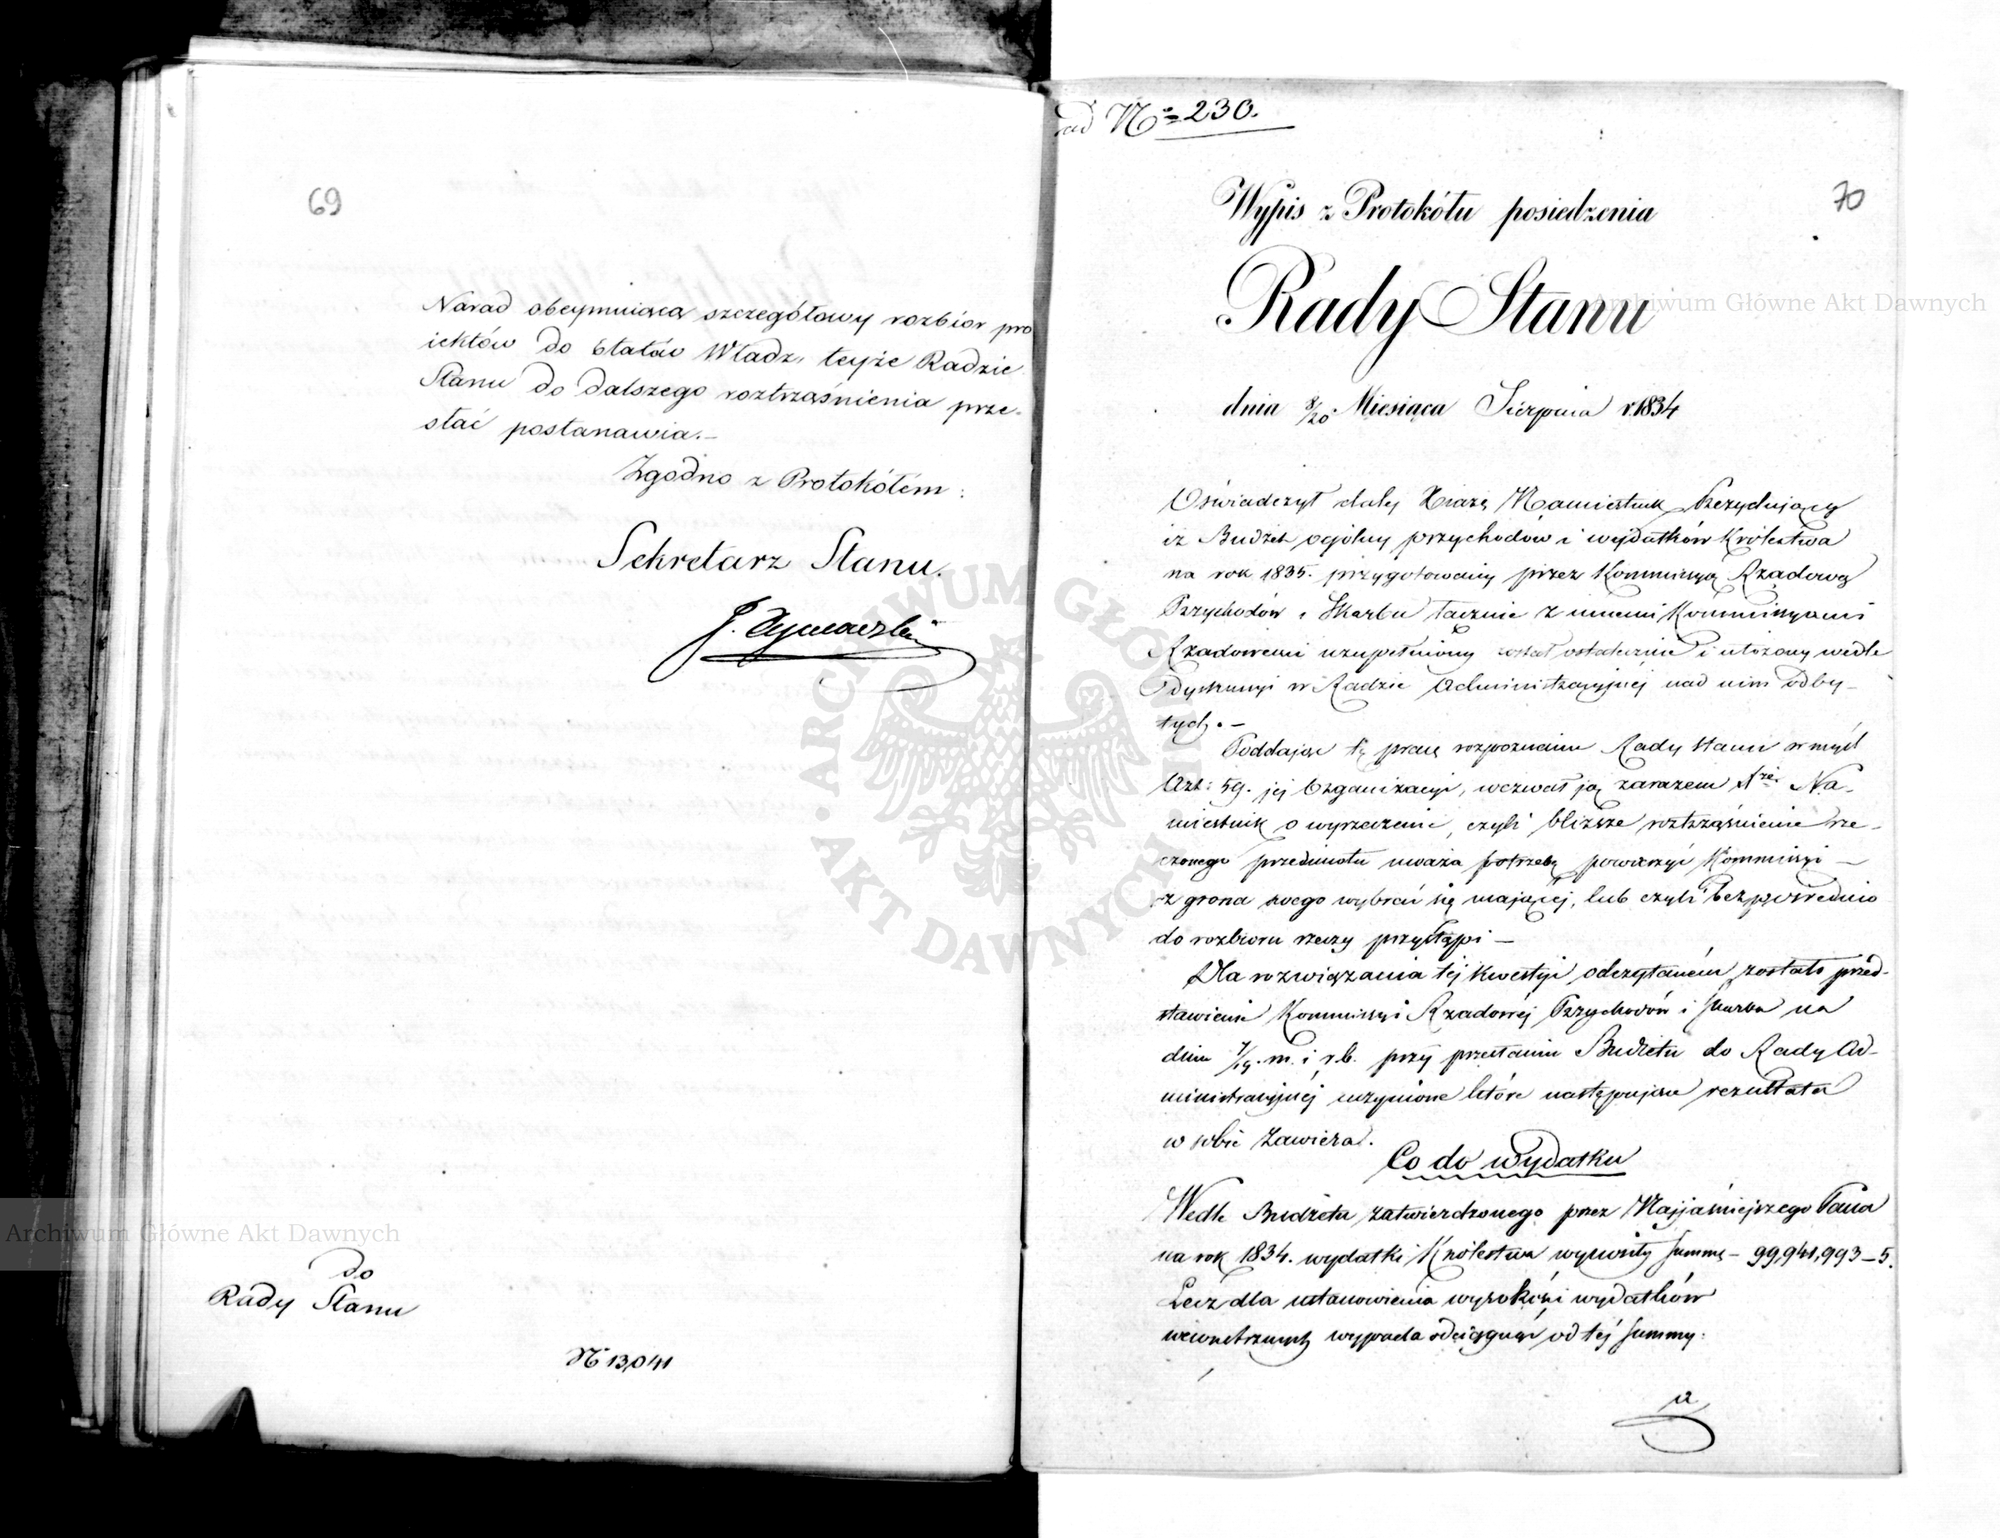 69
Narad obeymuiąca szczegółowy rozbiór pro
iektów do Etatów Władz, teyże Radzie
Stanu do dalszego roztrząśnienia prze-
słać postanawia.-
Zgodno z Protokółem:
Sekretarz Stanu.
do
Rady Stanu
N 13,041
ad No 230.
70
Wypis z Protokółu posiedzenia
Rady Stanu
dnia 8/20 Miesiąca Sierpnia r. 1834
Oświadczył daley Xiążę Namiestnik Prezyduiący
iż Budżet ogólny przychodów i wydatków Królestwa
na rok 1835. przygotowany przez Kommissyą Rządową
Przychodów i Skarbu łącznie z innemi Kommissyami
Rządowemi uzupełniony został ostatecznie i ułożony wedle
dyskussyi w Radzie Administracyjnej nad nim odby-
tych.-
Poddając tę pracę rozpoznaniu Rady Stanu w myśl
Art: 59. jej Organizacyi, wezwał ją zarazem Xże Na-
miestnik o wyrzeczenie, czyli bliższe roztrząśnienie rze-
czonego przedmiotu uważa potrzebę powierzyć Kommissyi -
z grona swego wybrać się mającej, lub czyli bezpośrednio
do rozbioru rzeczy przystąpi -
Dla rozwiązania tej kwestyi odczytaném zostało przed-
stawienie Kommissyi Rządowéj Przychodów i Skarbu na
dniu 7/19. m. i r. b. przy przesłaniu Budżetu do Rady Ad-
ministracyjnéj uczynione które następujące rezultata
w sobie zawiera.
Co do wydatku
Wedle Budżetu zatwierdzonego przez Najjaśniejszego Pana
na rok 1834. wydatki Królestwa wynosiły summę - 99,941,993-5.
Lecz dla ustanowienia wysokości wydatków
wewnetrznych wypada odciągnąć od tej summy:
a
Archiwum Główne Akt Dawnych
Archiwum Główne Akt Dawnych
ARCHIWUM GŁÓWNE AKT DAWNYCH